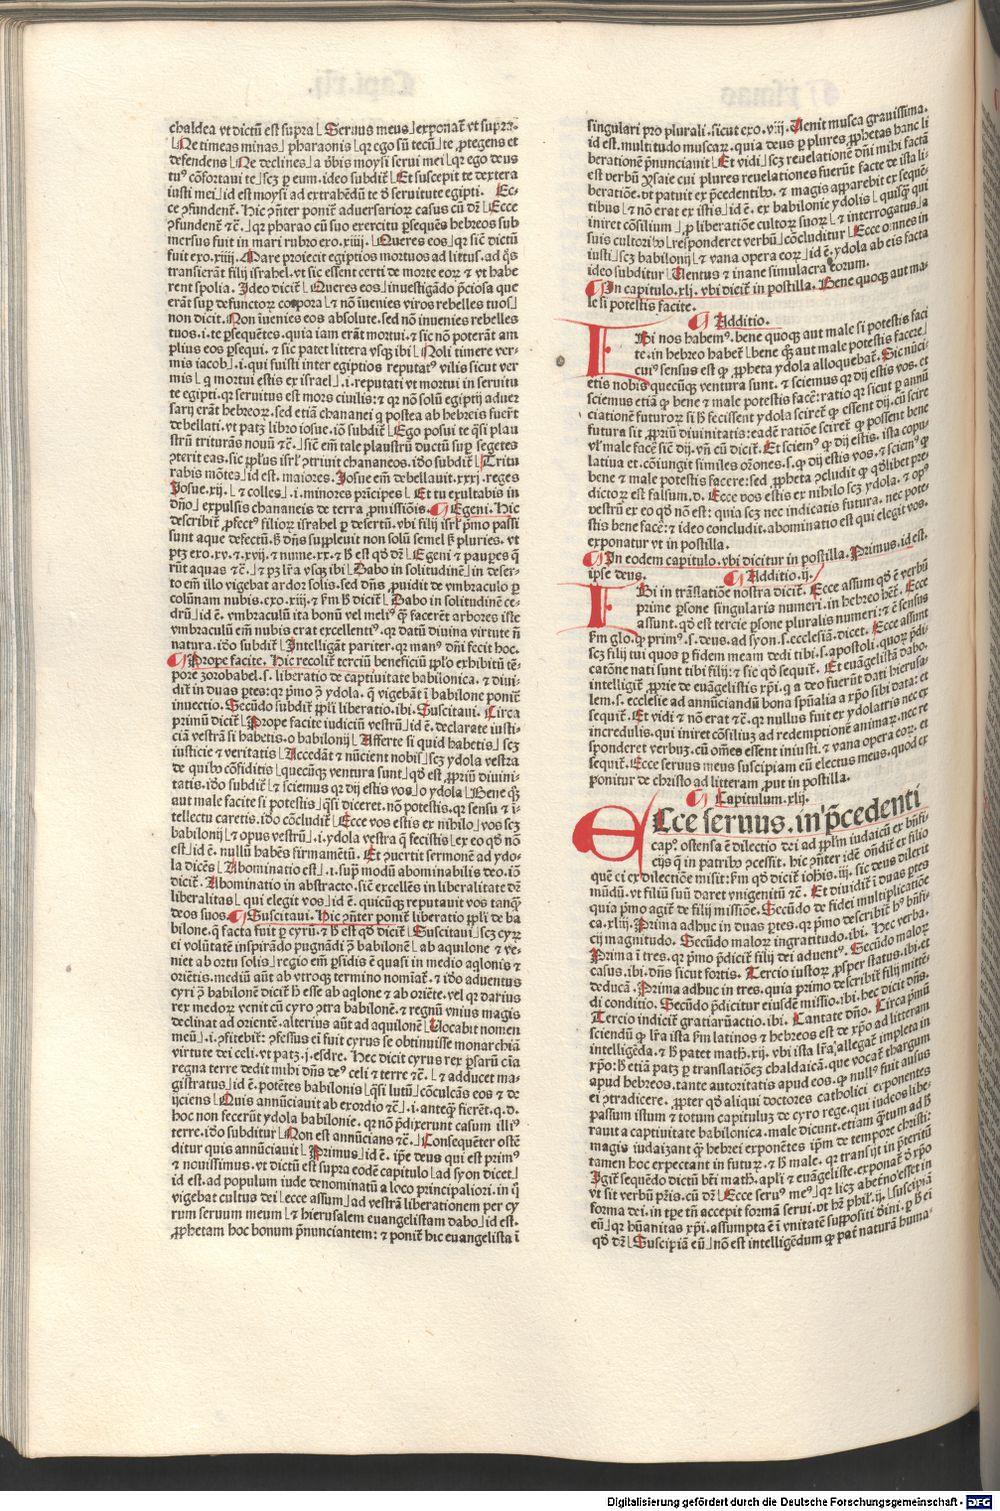 chaldea vt dictū est supra Seruus meus exponat̄ vt supra·
Ne timeas minas pharaonis qr ego sū tecū te ꝓtegens et
defendens Ne declines a vᷣbis moysi serui mei qr ego deus
tuꝰ cōfortaui te scꝫ ꝑ eum. ideo subdit̄ Et suscepit te dextera
iusti mei id est moysi ad extrahēdū te ď seruitute egipti. Ec-
ce ꝯfundent̄. Hic ꝯn̄ter ponit̄ aduersarioꝝ casus cū dȓ Ecce
ꝯfundent̄ ⁊c̄. qr pharao cū suo exercitu ꝑsequēs hebreos sub
mersus fuit in mari rubro exo.xiiij. Queres eos qr sic̄ dictū
fuit exo.xiiij. Mare proiecit egiptios mortuos ad littus.ad q̄s
transierāt filij israhel.vt sic essent certi de morte eoꝝ ⁊ vt habe
rent spolia. Ideo dicit̄ Queres eos inuestigādo p̄ciosa que
erāt suꝑ defunctoꝝ corpora ⁊ nō īuenies viros rebelles tuos
non dicit. Non īuenies eos absolute.sed nō inuenies rebelles
tuos.i. te ꝑsequētes.quia iam erāt mortui.⁊ sic nō poterāt am
plius eos ꝑsequi. ⁊ sic patet littera vsqꝫ ibi Noli timere ver-
mis iacob .i. qui fuisti inter egiptios reputatꝰ vilis sicut ver
mis q̄ mortui estis ex israel .i. reputati vt mortui in seruitu
te egipti.qr seruitus est mors ciuilis: ⁊ qr nō solū egiptij aduer
sarij erāt hebreoꝝ. sed etiā chananei q̄ postea ab hebreis fuert̄
debellati. vt patꝫ libro iosue. iō subdit̄ Ego posui te q̄si plau
strū triturās nouū ⁊c̄. sic̄ em̄ tale plaustrū ductū suꝑ segetes
ꝯterit eas. sic ꝓplus isrl̄ ꝯtriuit chananeos. iđo subdit̄ Tritu
rabis mōtes id est. maiores. Josue em̄ debellauit.xxxj.reges
Josue.xij. ⁊ colles .i. minores pr̄cipes Et tu exultabis in
dn̄o expulsis chananeis de terra ꝓmissiōis. Egeni. Hic
describit̄ ꝓfectꝰ filioꝝ israhel ꝑ desertū.vbi filij isrl̄ pͥmo passi
sunt aque defectū. ꝗ̄ dn̄s suppleuit non solū semel sꝫ pluries. vt
ptꝫ exo.xv.⁊.xvij. ⁊ nume.xx. ⁊ ħ est qđ dȓ Egeni ⁊ paupes q̄
rūt aquas ⁊c̄ ⁊ pꝫ lr̄a vsqꝫ ibi Dabo in solitudinē in deser-
to em̄ illo vigebat ardor solis. sed dn̄s ꝓuidit de vmbraculo ꝑ
colūnam nubis.exo.xiij.⁊ ẜm ħ dicit̄ Dabo in solitudinē ce-
drū id ē. vmbraculū ita bonū vel meliꝰ q̄ȝ facerēt arbores iste
vmbraculū em̄ nubis erat excellentiꝰ.qr datū diuina virtute ñ
natura. iđo subdit̄ Intelligāt pariter.qr manꝰ dn̄i fecit hoc.
Prope facite. Hic recolit̄ terciū beneficiū ꝓplo exhibitū tē-
pore zorobabel.s. liberatio de captiuitate babilonica. ⁊ diui-
dit̄ in duas ꝑtes: qr pͥmo ꝯ̄ ydola. q̄ vigebāt ī babilone ponit̄
inuectio. Secūdo subdit̄ ꝓpli liberatio.ibi. Suscitaui. Circa
primū dicit̄ Prope facite iudiciū vestrū id ē.declarate iusti-
ciā vestrā si habetis.o babilonij Afferte si quid habetis scꝫ
iusticie ⁊ veritatis Accedāt ⁊ nūcient nobis scꝫ ydola vestra
de quibꝯ cōfiditis quecūqꝫ ventura sunt qđ est ꝓpriū diuini-
tatis.iđo subdit̄ ⁊ sciemus qr dij estis vos o ydola Bene qꝫ
aut male facite si potestis q̄si diceret. nō potestis.qr sensu ⁊ i-
tellectu caretis.iđo cōcludit̄ Ecce vos estis ex nihilo vos scꝫ
babilonij ⁊ opus vestrū .i.ydola vestra q̄ fecistis ex eo qđ nō
est id ē. nullū habēs firmamētū. Et ꝯuertit sermonē ad ydo-
la dicēs Abominatio est .i. suꝑ modū abominabilis deo.iō
dicit̄. Abominatio in abstracto.sic̄ excellēs in liberalitate dȓ
liberalitas qui elegit vos id ē. quicūqꝫ reputauit vos tanq̄ȝ
deos suos. Suscitaui. Hic ꝯn̄ter ponit̄ liberatio ꝓpli de ba
bilone.q̄ facta fuit ꝑ cyrū.⁊ ħ est qđ dicit̄ Suscitaui scꝫ cyrū
ei volūtatē inspirādo pugnādi ꝯ̄ babilonē ab aquilone ⁊ ve-
niet ab ortu solis regio em̄ ꝑsidis ē quasi in medio aq̄lonis ⁊
oriētis.mediū aūt ab vtroqꝫ termino nomīat̄. ⁊ iđo aduentus
cyri ꝯ̄ babilonē dicit̄ ħ esse ab aq̄lone ⁊ ab oriēte.vel qr darius
rex medoꝝ venit cū cyro ꝯtra babilonē.⁊ regnū vnius magis
declinat ad orientē.alterius aūt ad aquilonē Vocabit nomen
meū .i. ꝯfitebit̄: ꝓfessus ei fuit cyrus se obtinuisse monarchiā
virtute dei celi.vt patꝫ.j.esdre. Hec dicit cyrus rex ꝑsarū cūa
regna terre dedit mihi dn̄s deꝰ celi ⁊ terre ⁊c̄. ⁊ adducet ma-
gistratus id ē.potētes babilonis q̄si lutū cōculcās eos ⁊ de
ijciens Quis annūciauit ab exordio ⁊c̄ .i. anteq̄ȝ fierēt.q.d.
hoc non fecerūt ydola babilonie.qr nō p̄dixerunt casum illiꝰ
terre.iđo subditur Non est annūcians ⁊c̄. Consequēter ostē
ditur quis annūciauit Primus id ē. ip̄e deus qui est primꝰ
⁊ nouissimus.vt dictū est supra eodē capitulo ad syon dicet
id est.ad populum iude denominatū a loco principaliori.in q̄
vigebat cultus dei ecce assum ad vestrā liberationem per cy
rum seruum meum ⁊ hierusalem euangelistam dabo id est.
ꝓphetam hoc bonum p̄nunciantem: ⁊ ponit̄ hic euangelista ī
singulari pro plurali.sicut exo.viij. Venit musca grauissima.
id est.multitudo muscaꝝ.quia deus ꝑ plures ꝓphetas hanc li
berationē p̄nunciauit Et vidi scꝫ reuelationē dn̄i mihi factā
est verbū ysaie cui plures reuelationes fuerūt facte de ista li-
beratiōe.vt patuit ex p̄cedentibꝯ.⁊ magis apparebit ex seque-
tibus ⁊ nō erat ex istis id ē. ex babilonie ydolis quisqȝ qui
iniret cōsilium ꝓ liberatiōe cultoꝝ suoꝝ ⁊ interrogatus a
suis cultoribꝯ responderet verbū cōcluditur Ecce omnes in
iusti scꝫ babilonij ⁊ vana opera eoꝝ id ē.ydola ab eis facta
ideo subditur Uentus ⁊ inane simulacra eorum.
In capitulo.xlj. vbi dicit̄ in postilla. Bene quoqꝫ aut ma-
le si potestis facite.
Additio.
Ubi nos habemꝰ.bene quoqꝫ aut male si potestis faci
te.in hebreo habet̄ bene qꝫ aut male potestis facere
cuiꝰ sensus est ꝙ ꝓpheta ydola alloquebat̄. Sic nūci-
etis nobis quecūqꝫ ventura sunt. ⁊ sciemus qr dij estis vos. et
sciemus etiā ꝙ bene ⁊ male potestis facē:ratio qr sicut ꝑ annū
ciationē futuroꝝ si ħ fecissent ydola sciret̄ ꝙ essent dij.cū scire
futura sit ꝓpriū diuinitatis:eadē ratiōe sciret̄ ꝙ possent bene
vl̄ male facē sic̄ dij.vn̄ cū dicit̄. Et sciemꝰ ꝙ dij estis. ista copu
latiua et.cōiungit similes or̄ones.s.ꝙ dij estis vos.⁊ sciemꝰ ꝙ
bene ⁊ male potestis facere:sed ꝓpheta ꝯcludit ꝙ qđlibet pre
dictoꝝ est falsum.d. Ecce vos estis ex nihilo scꝫ ydola. ⁊ opꝰ
vestrū ex eo qđ nō est: quia scꝫ nec indicatis futura. nec pote-
stis bene facē: ⁊ ideo concludit.abominatio est qui elegit vos.
exponatur vt in postilla.
In eodem capitulo.vbi dicitur in postilla. Primus.id est.
ipse deus.
Additio.ij.
Ubi in trāslatiōe nostra dicit̄. Ecce assum qđ ē verbū
prime ꝑsone singularis numeri.in hebreo hēt̄. Ecce
assunt.qđ est tercie ꝑsone pluralis numeri: ⁊ ē sensus
ẜm glo.ꝙ primꝰ.s.deus.ad syon.s.ecclesiā.dicet. Ecce assunt
scꝫ filij tui quos ꝑ fidem meam dedi tibi.s.apostoli.quoꝝ p̄di-
catōne nati sunt tibi filij: ⁊ sic qđ sequit̄. Et euāgelistā dabo.
intelligit̄ ꝓprie de euāgelistis xp̄i.q̄ a deo fuerūt dati hierusa-
lem.s. ecclesie ad annūciandū bona sp̄ualia a xp̄o sibi data: et
sequit̄. Et vidi ⁊ nō erat ⁊c̄.qr nullus fuit ex ydolatris nec ex
incredulis.qui iniret cōsiliuꝫ ad redemptionē animaꝝ.nec re
sponderet verbuꝫ.cū om̄es essent iniusti.⁊ vana opera eoꝝ. et
sequit̄. Ecce seruus meus suscipiam eū electus meus.quod ex
ponitur de christo ad litteram.put in postilla.
Capitulum.xlij.
Ecce seruus.in p̄cedenti
capꝰ. ostensa ē dilectio dei ad ꝓplm̄ iudaicū ex bn̄fi-
cijs q̄ in patribꝯ ꝓcessit. hic ꝯn̄ter idē on̄dit̄ ex filio
quē ci ex dilectiōe misit: ẜm qđ dicit̄ ioħis.iij. sic deus dilexit
mūdū.vt filiū suū daret vnigenitū ⁊c̄. Et diuidit̄ ī duas ꝑtes
quia pͥmo agit̄ de filij missiōe. Secūdo de fidei multiplicatiōe
ca.xliij. Prima adhuc in duas ꝑtes. qr pͥmo describit̄ hꝰ bn̄fi-
cij magnitudo. Secūdo maloꝝ ingratitudo.ibi. Hec verba.
Prima ī tres.qr pͥmo p̄dicit̄ filij dei aduentꝰ. Secūdo maloꝝ
casus.ibi.dn̄s sicut fortis. Tercio iustoꝝ ꝓsper status.ibi.et
deducā. Prima adhuc in tres. quia primo describit̄ filij mittē-
di conditio. Secūdo p̄dicitur eiusdē missio.ibi.hec dicit dn̄s.
Tercio indicit̄ gratiaꝝ actio.ibi. Cantate dn̄o. Circa pͥmū
sciendū ꝙ lr̄a ista ẜm latinos ⁊ hebreos est de xp̄o ad litteram
intelligēda.⁊ ħ patet math.xij. vbi ista lr̄a allegat̄ impleta in
xp̄o: ħ etiā patꝫ ꝑ translatiōeꝫ chaldaicā.que vocat̄ thargum
apud hebreos. tante autoritatis apud eos. ꝙ nullꝰ fuit ausus
ei ꝯtradicere. ꝓpter qđ aliqui doctores catholici exponentes
passum istum ⁊ totum capituluꝫ de cyro rege.qui iudeos libe-
rauit a captiuitate babilonica.male dicunt.etiam q̄ntum ad ħ
magis iudaizant q̄ȝ hebrei exponētes ip̄m de tempore christi:
tamen hoc expectant in futuꝝ. ⁊ ħ male.qr transijt in p̄teritū
Igit̄ sequēdo dictū bt̄i math.apl̄i ⁊ euāgeliste.exponat̄ ď xp̄o
vt sit verbū pr̄is.cū dȓ Ecce seruꝰ meꝰ qr licꝫ ab et̄no eēt in
forma dei.in tp̄e tn̄ accepit formā serui.vt hȓ phil̄.ij. suscipiā
eū qr hūanitas xp̄i.assumpta ē ī vnitatē suppositi diuini.ꝑ ħ ei
qđ dȓ Suscipiā eū nō est intelligēdum ꝙ pat̄ naturā huma-
Digitalisierung gefördert durch die Deutsche Forschungsgemeinschaft - DFG